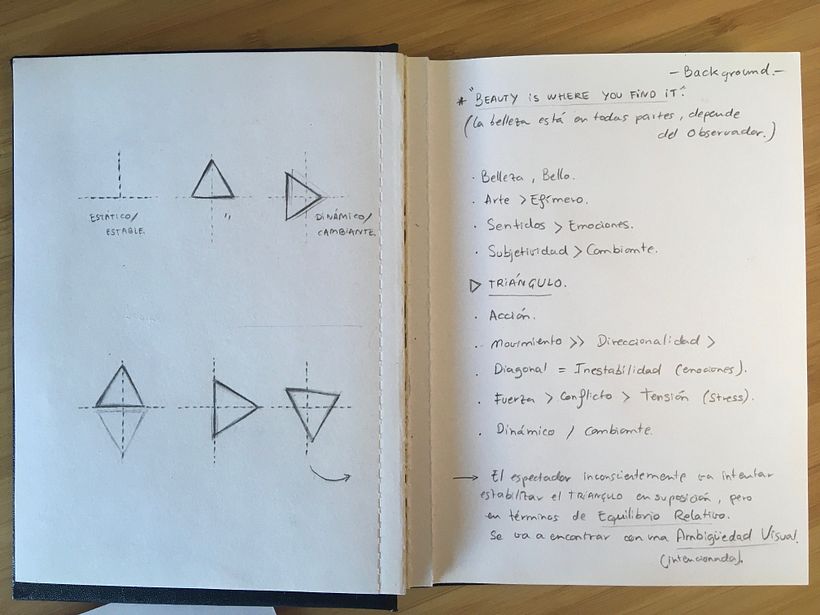 ESTÁTICO/
ESTABLE.
"
DINÁMICO/
CAMBIANTE.
- Background. -
* "BEAUTY IS WHERE YOU FIND IT".
(La belleza está en todas partes, depende
del Observador.)
· Belleza, Bello.
· Arte > Efímero.
· Sentidos > Emociones.
· Subjetividad > Cambiante.
▷ TRIÁNGULO.
· Acción.
· Movimiento >> Direccionalidad >
· Diagonal = Inestabilidad (emociones).
· Fuerza > Conflicto > Tensión (Stress).
· Dinámico / Cambiante.
→ El espectador inconscientemente va intentar
estabilizar el TRIANGULO en su posición, pero
en términos de Equilibrio Relativo.
Se va a encontrar con una Ambigüedad Visual.
(intencionada).